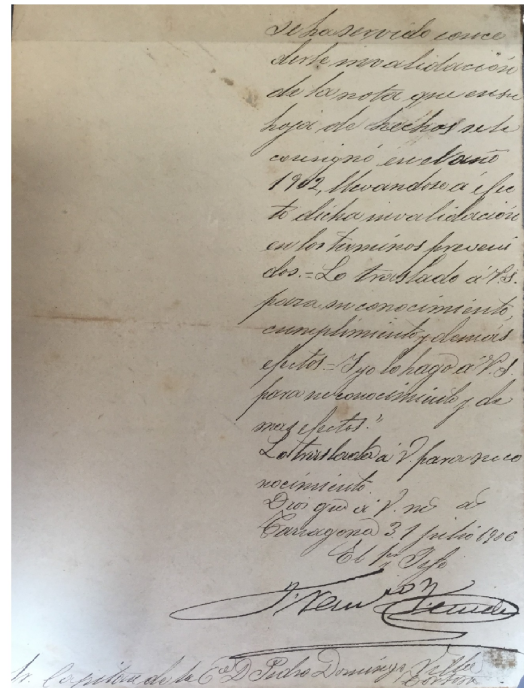 se ha servido conce
derle invalidación
de la nota que en su
hoja de hechos se le
consignó en el año
1902, llevandose á efec
to dicha invalidación
en los terminos preveni
dos.=Lo traslado á V.S.
para su conocimiento,
cumplimiento y demás
efectos=Y yo lo hago á V.S.
para su conocimiento y de
mas efectos."
Lo traslado á V. para su co
nocimiento.
Dios gue á V. ms as
Tarragona 31 julio 1906
El 1er Jefe
Sr. Capitan de la Cª D. Pedro Domingo